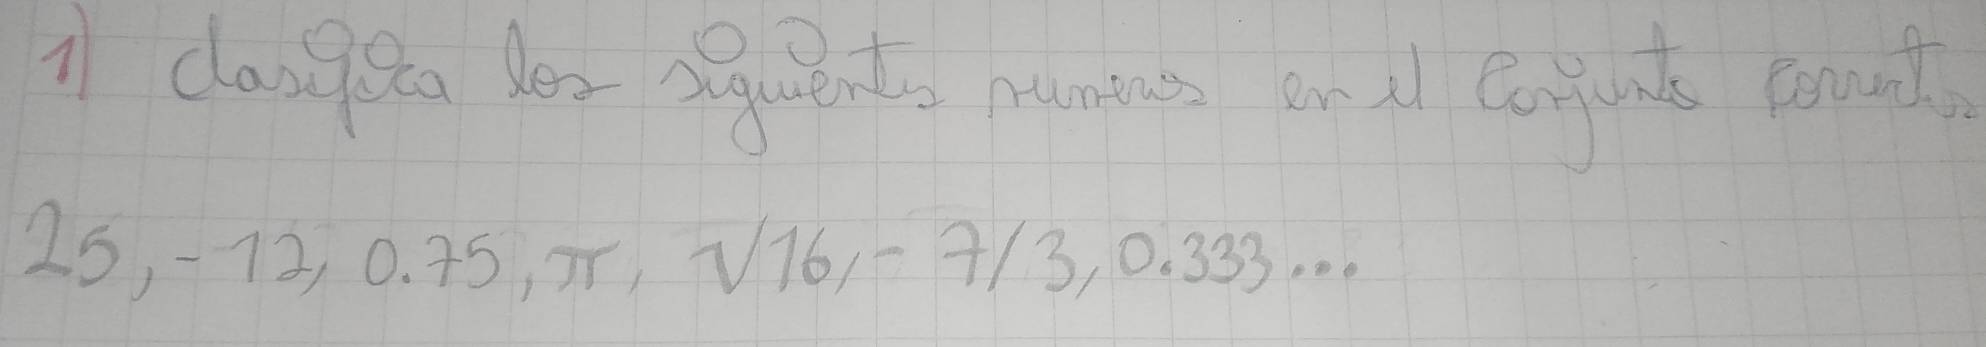 1) Clasifica los siguientes numeros en el Conjunto correcto
25, -12, 0.75, π, √16, - 7/3, 0.333...